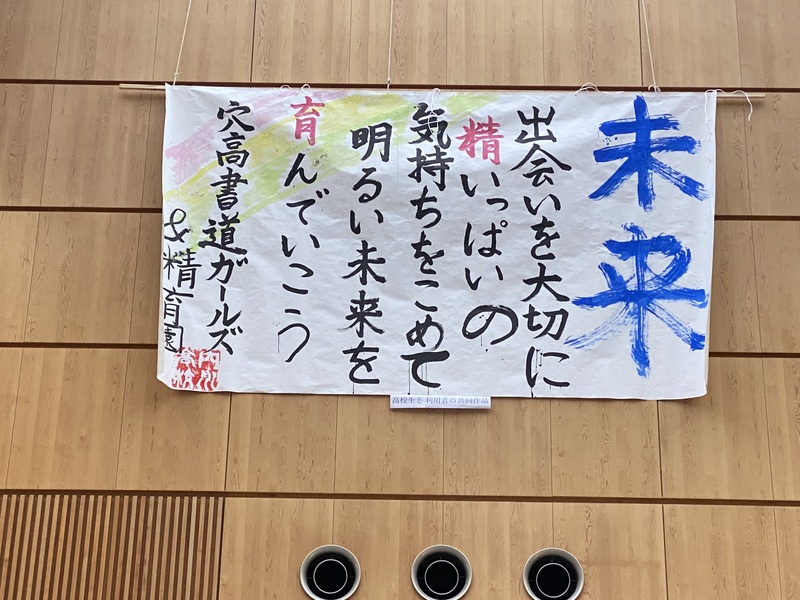 未来
出会いを大切に
精いっぱいの
気持ちをこめて
明るい未来を
育んでいこう
穴高書道ガールズ
&精育園
高校生と利用者の共同作品